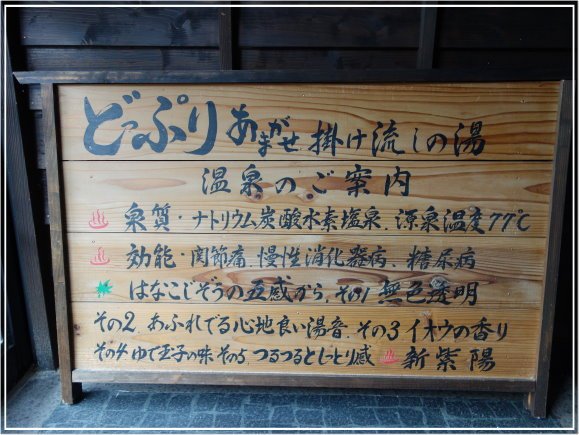 どっぷり あまがせ 掛け流しの湯
温泉のご案内
泉質・ナトリウム炭酸水素塩泉、源泉温度77℃
効能・関節痛、慢性消化器病、糖尿病
はなこじぞうの五感から、その1 無色透明
その2、あふれでる心地良い湯音、その3 イオウの香り
その4 ゆで玉子の味 その5、つるつるとしっとり感 新紫陽